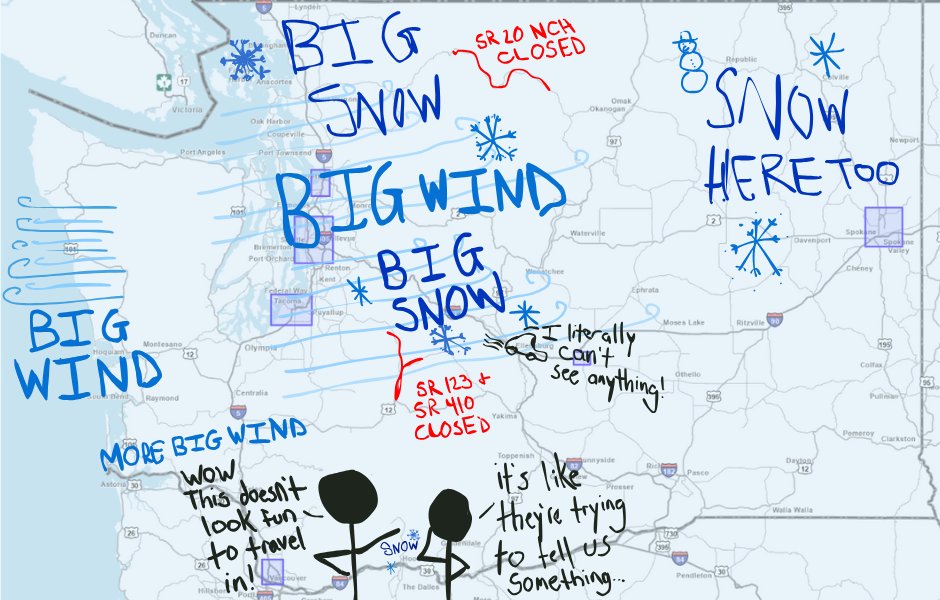 BIG
SNOW
SR 20 NCH
CLOSED
SNOW
HERE TOO
BIG WIND
BIG
SNOW
BIG
WIND
I literally
can't
see anything!
SR 123 &
SR 410
CLOSED
MORE BIG WIND
WOW
This doesn't
look fun
to travel
in!
it's like
they're trying
to tell us
something...
SNOW
Lynden
Duncan
Anacortes
Victoria
Oak Harbor
Coupeville
Port Angeles
Port Townsend
Republic
Colville
Omak
Okanogan
Newport
Waterville
Davenport
Spokane
Spokane
Valley
Cheney
Bremerton
Port Orchard
Renton
Kent
Federal Way
Tacoma
Puyallup
Ephrata
Moses Lake
Ritzville
Olympia
Hoquiam
Raymond
Centralia
Othello
Colfax
Pullman
Yakima
Toppenish
Sunnyside
Prosser
Pasco
Pomeroy
Clarkston
Dayton
Walla Walla
Astoria
Vancouver
Hillsboro
The Dalles
Pendleton
5
1
17
97
101
2
101
12
90
195
5
12
12
82
182
12
30
26
84
730
395
84
26